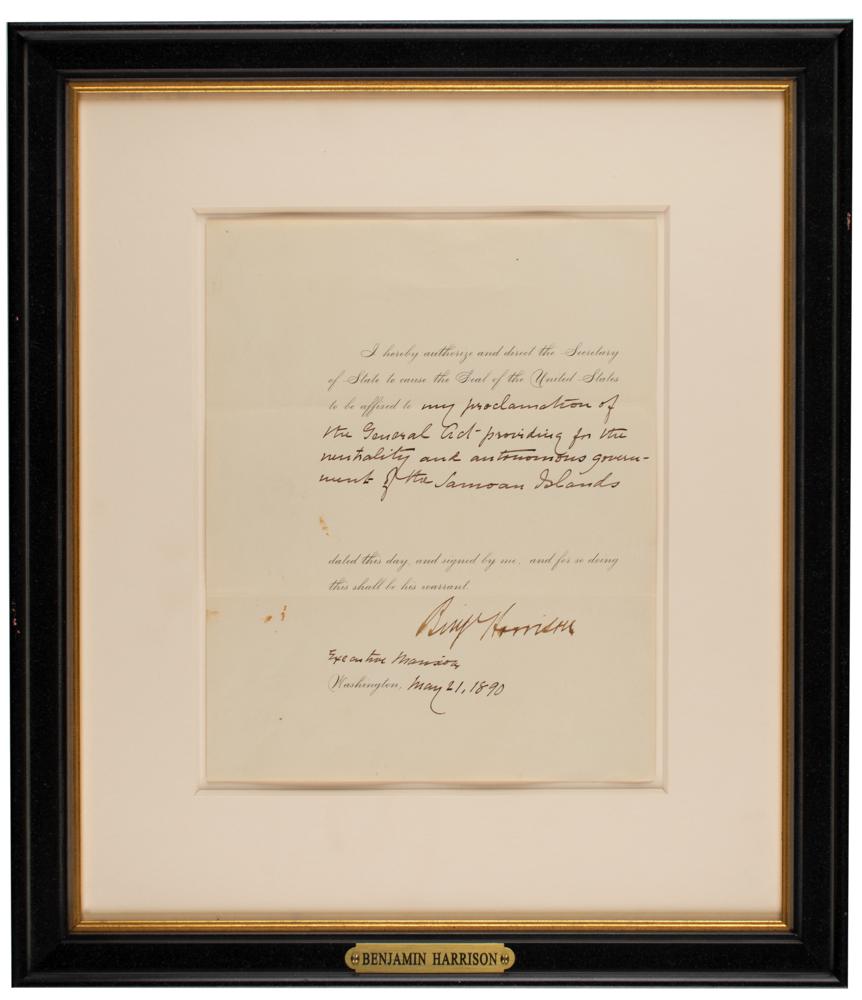 I hereby authorize and direct the Secretary
of State to cause the Seal of the United States
to be affixed to my proclamation of
the General Act providing for the
neutrality and autonomous govern-
ment of the Samoan Islands
dated this day, and signed by me, and for so doing
this shall be his warrant.
Benj Harrison
Executive Mansion
Washington, May 21, 1890
BENJAMIN HARRISON